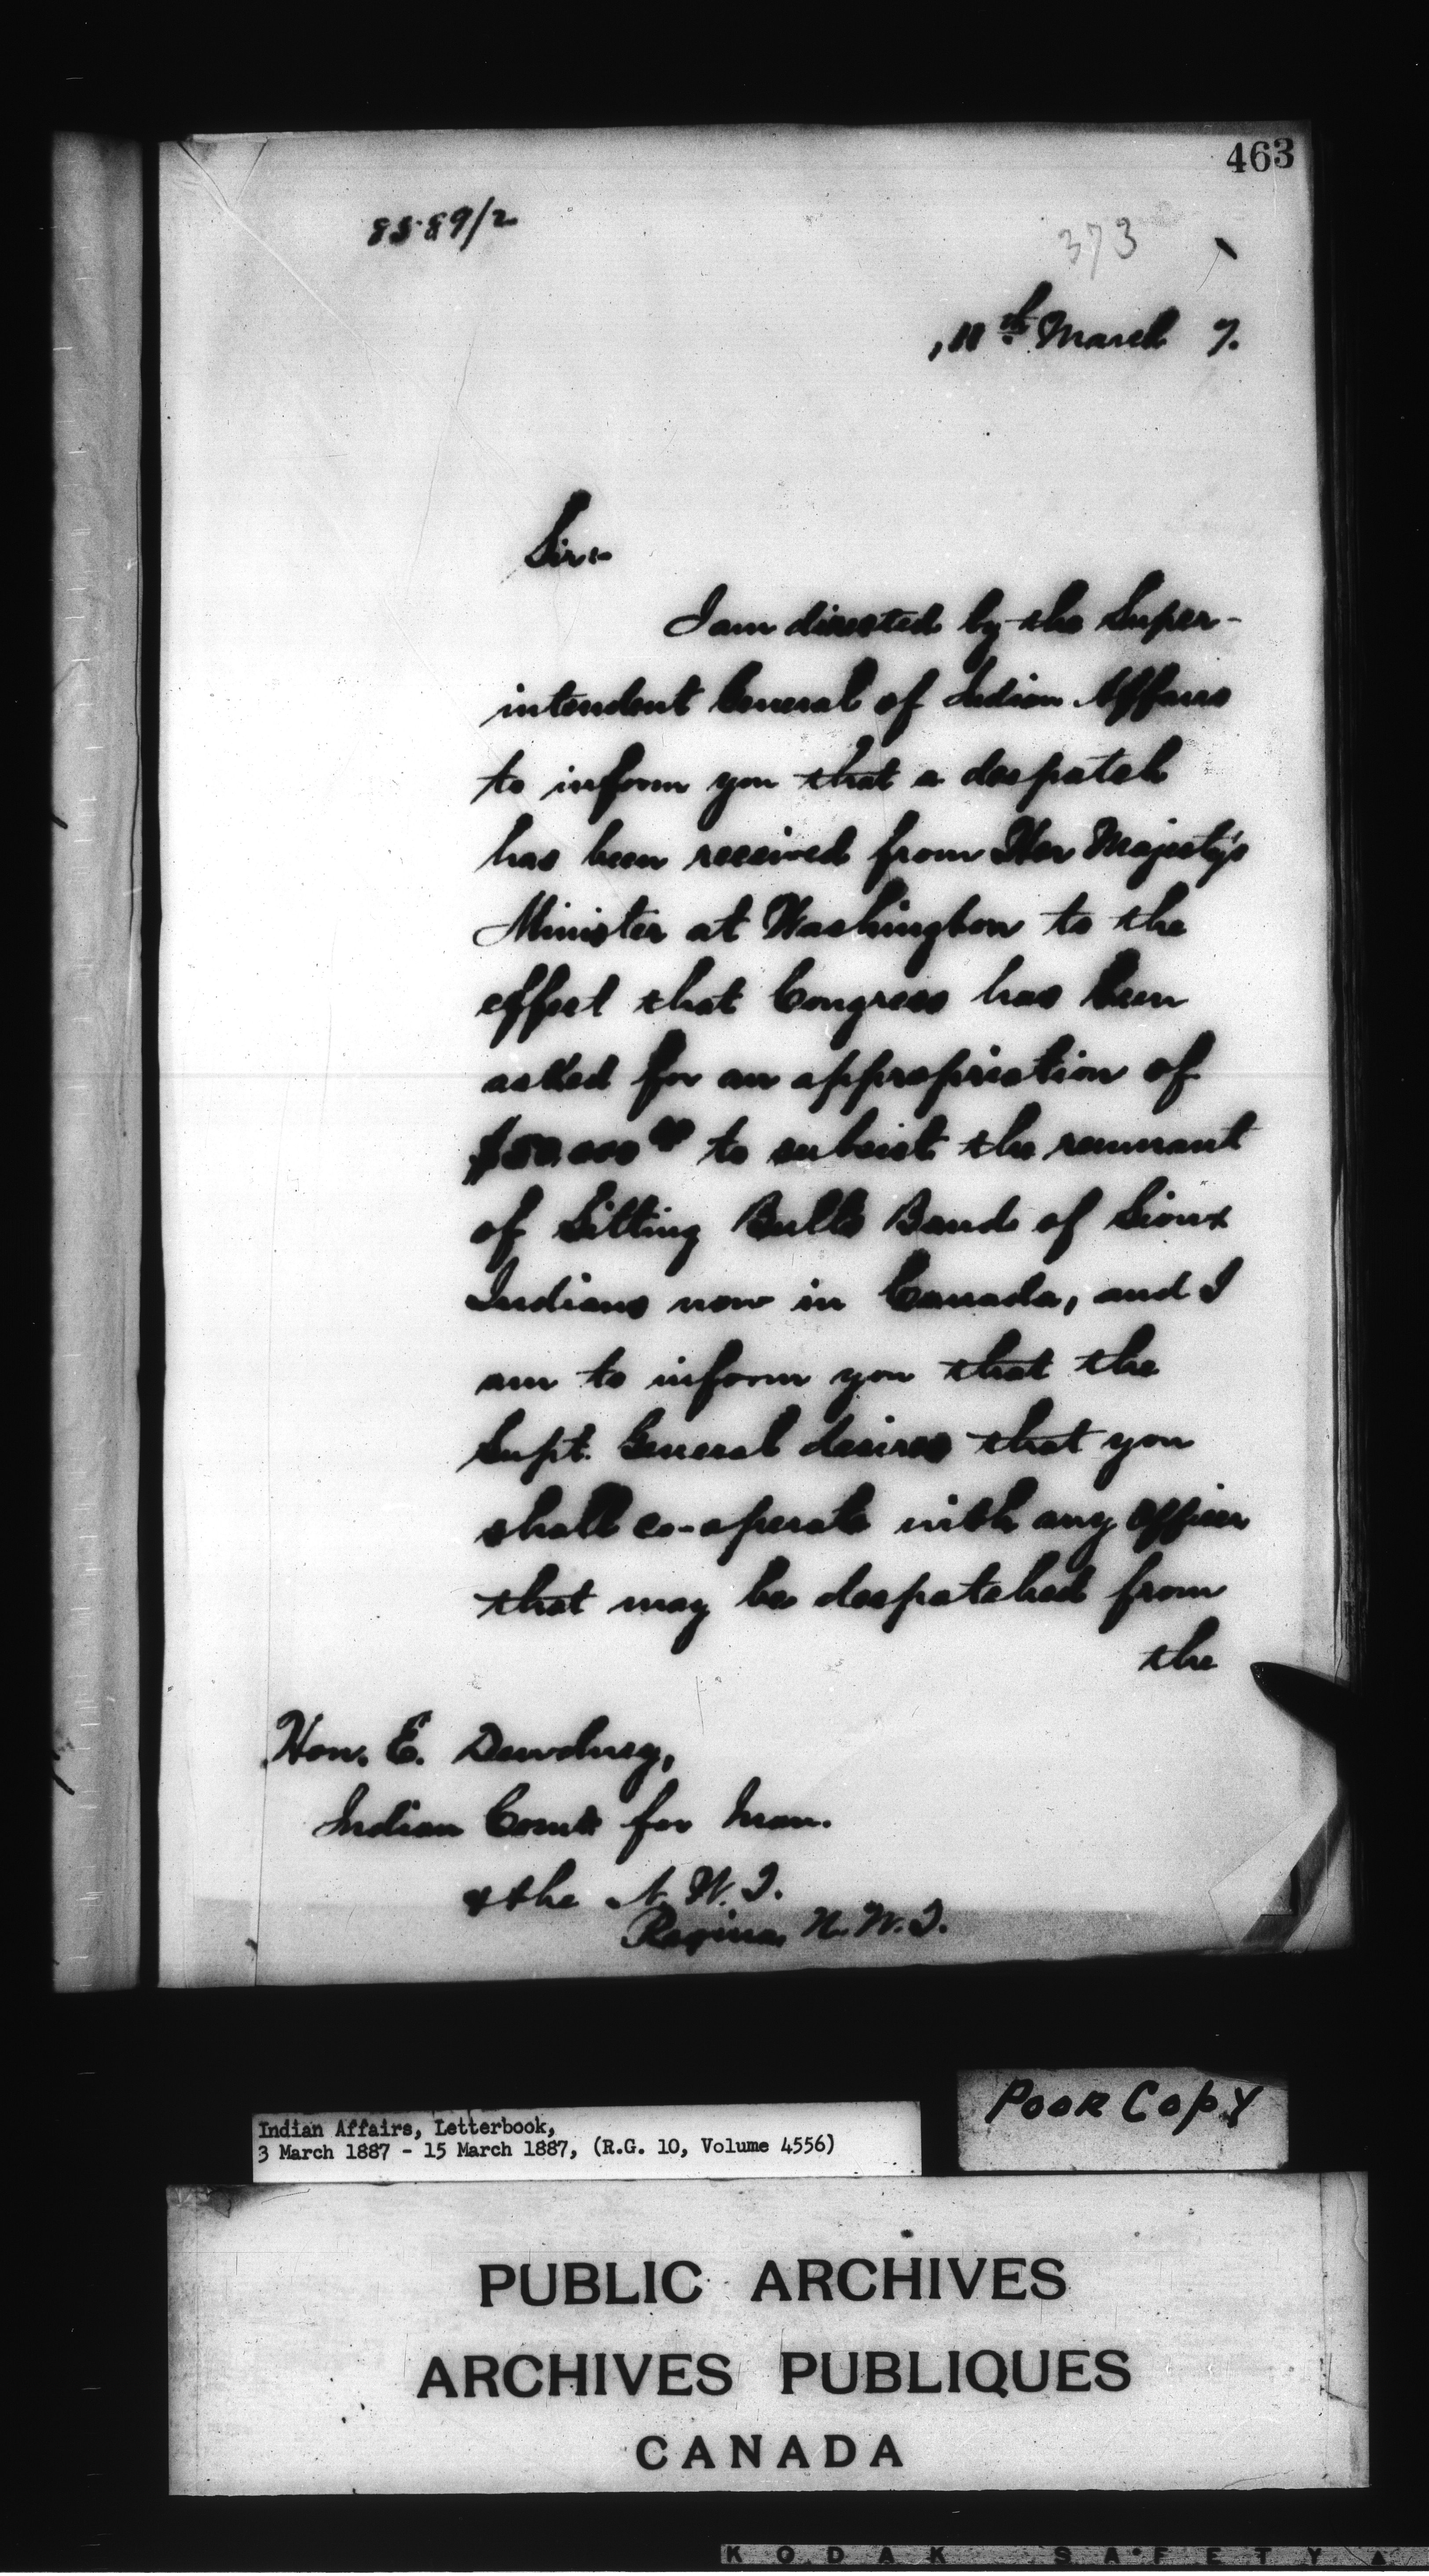 463
8589/2
373
, 11th March 7.
Sir:-
I am directed by the Super-
intendent General of Indian Affairs
to inform you that a despatch
has been received from Her Majesty's
Minister at Washington to the
effect that Congress has been
asked for an appropriation of
to subsist the remnant
of Sitting Bull's Band of Sioux
Indians now in Canada, and I
am to inform you that the
Supt. General desires that you
shall co-operate with any Officer
that may be despatched from
the
Hon. E. Dewdney,
Indian Comr for Man.
& the N.W.T.
Regina, N.W.T.
POOR COPY
Indian Affairs, Letterbook,
3 March 1887 - 15 March 1887, (R.G. 10, Volume 4556)
PUBLIC ARCHIVES
ARCHIVES PUBLIQUES
CANADA
KODAK SAFETY